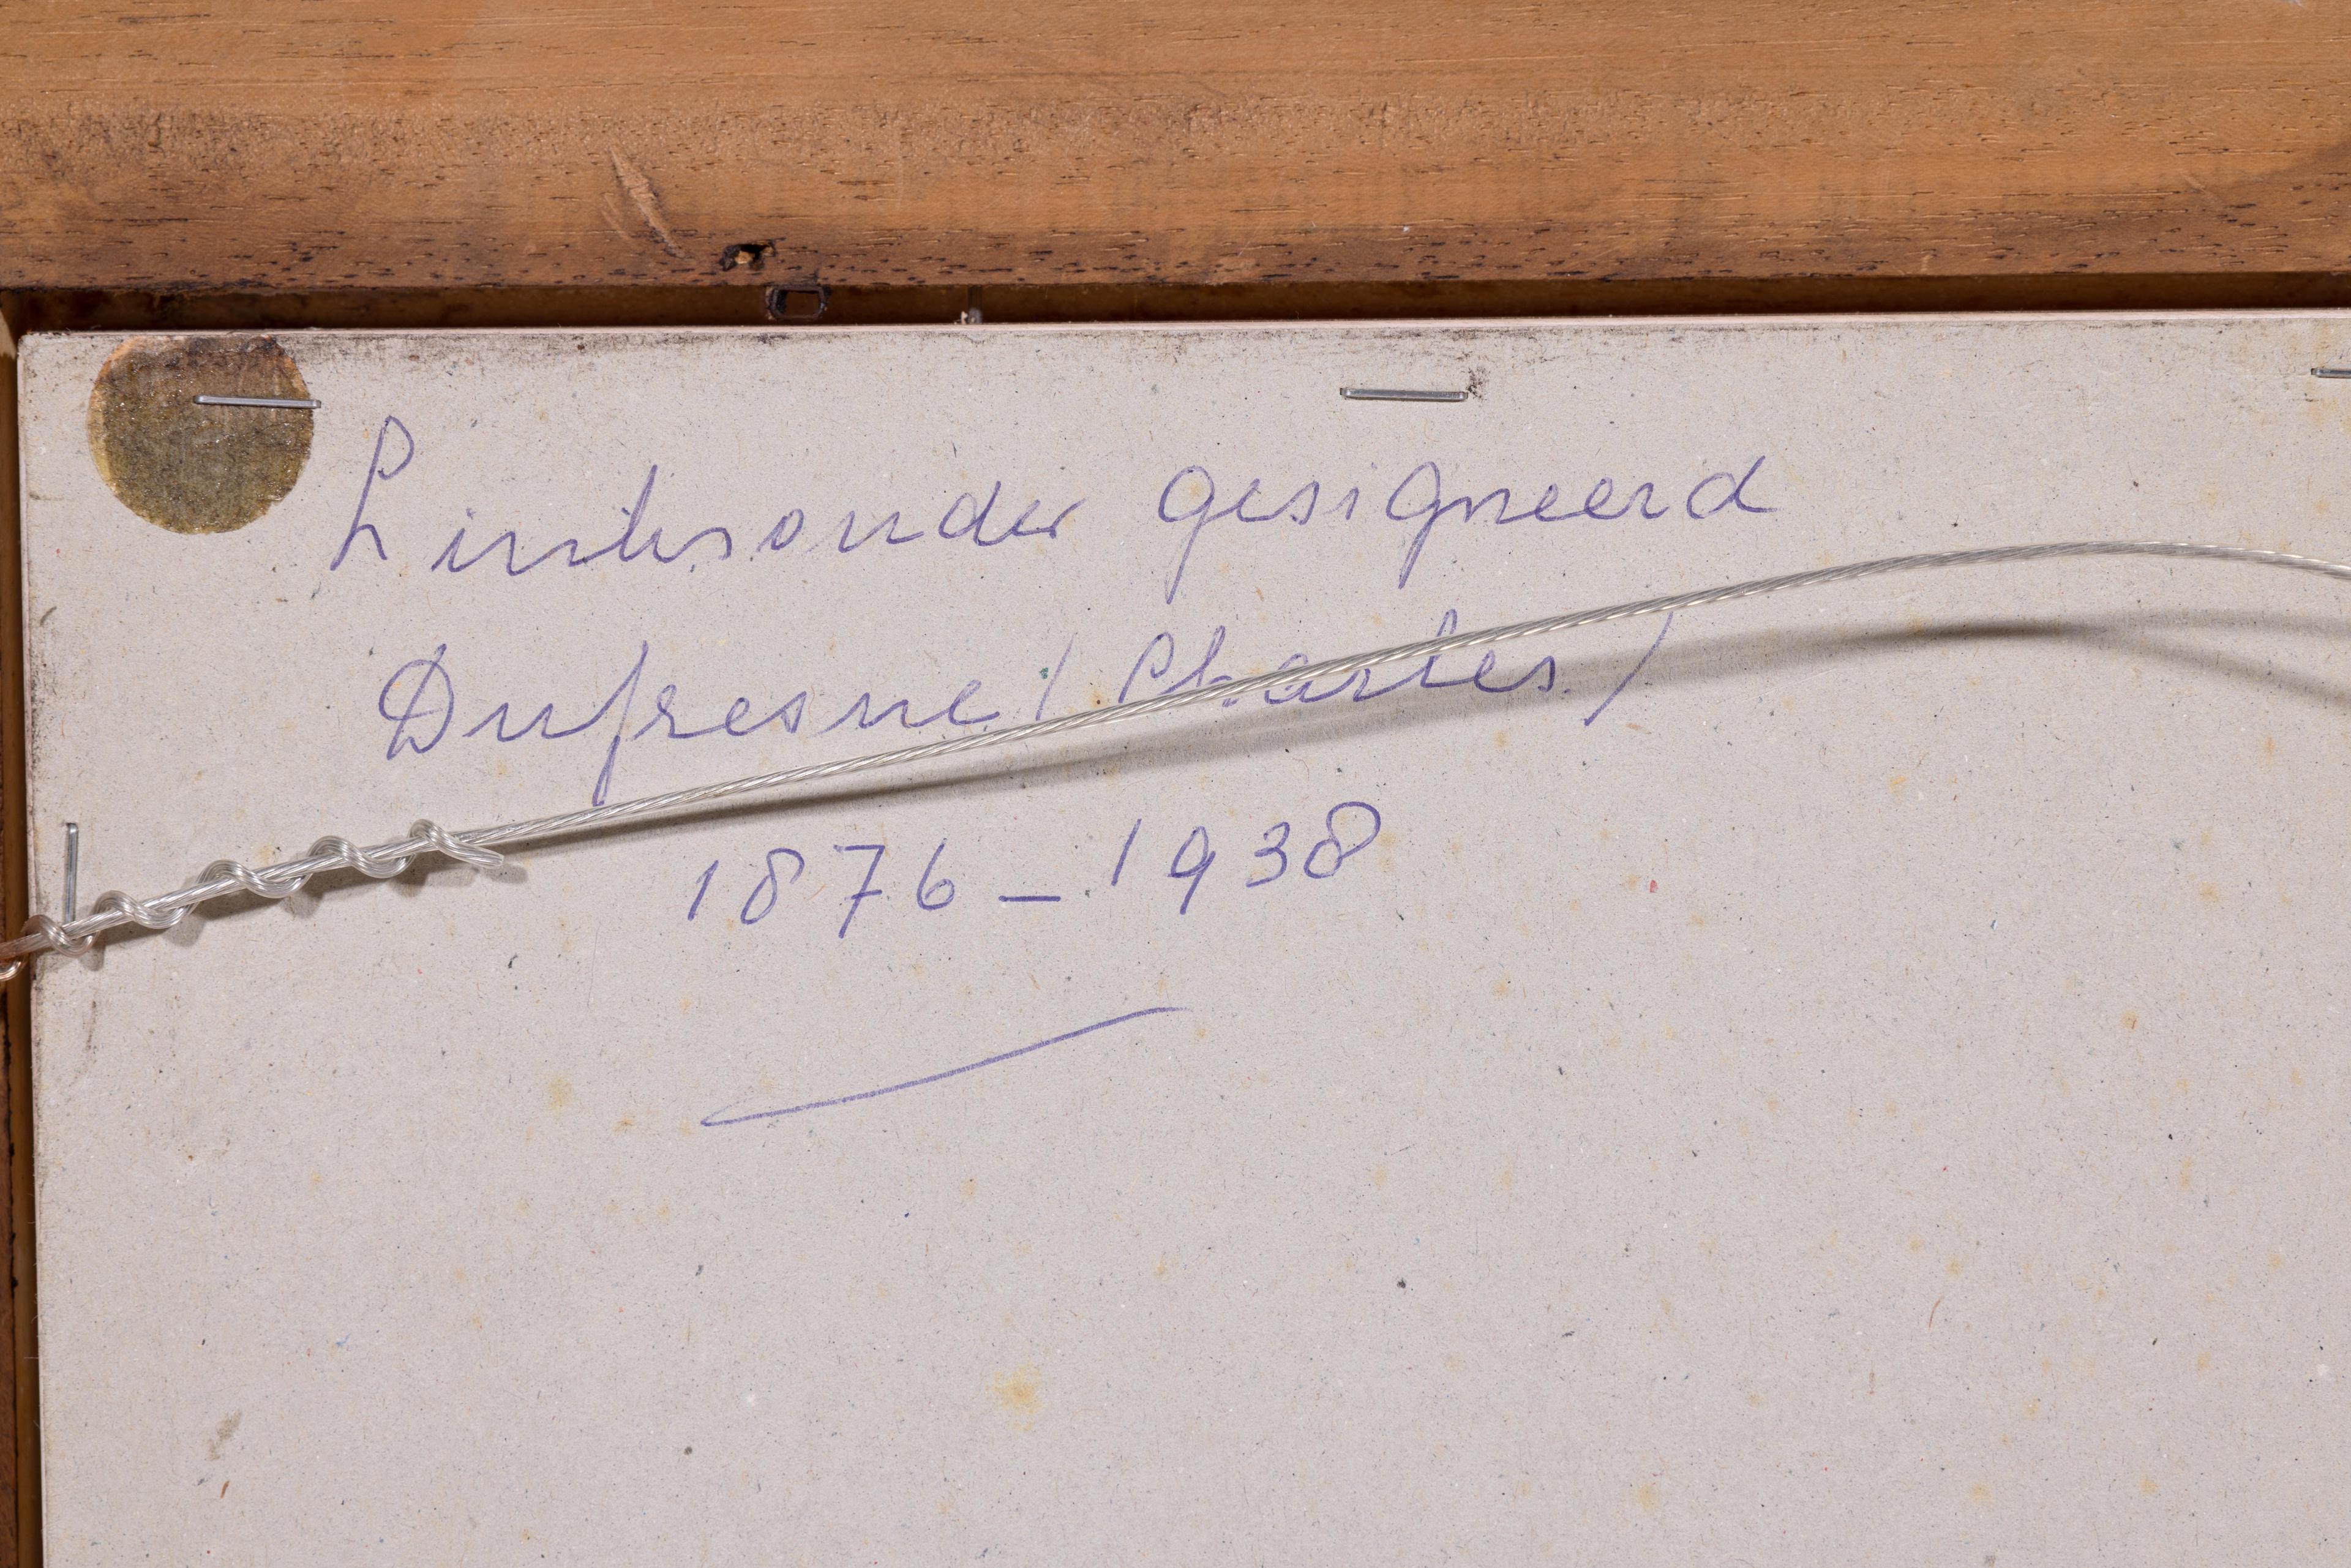 Linksonder gesigneerd
Dufresne / Charles /
1876 - 1938